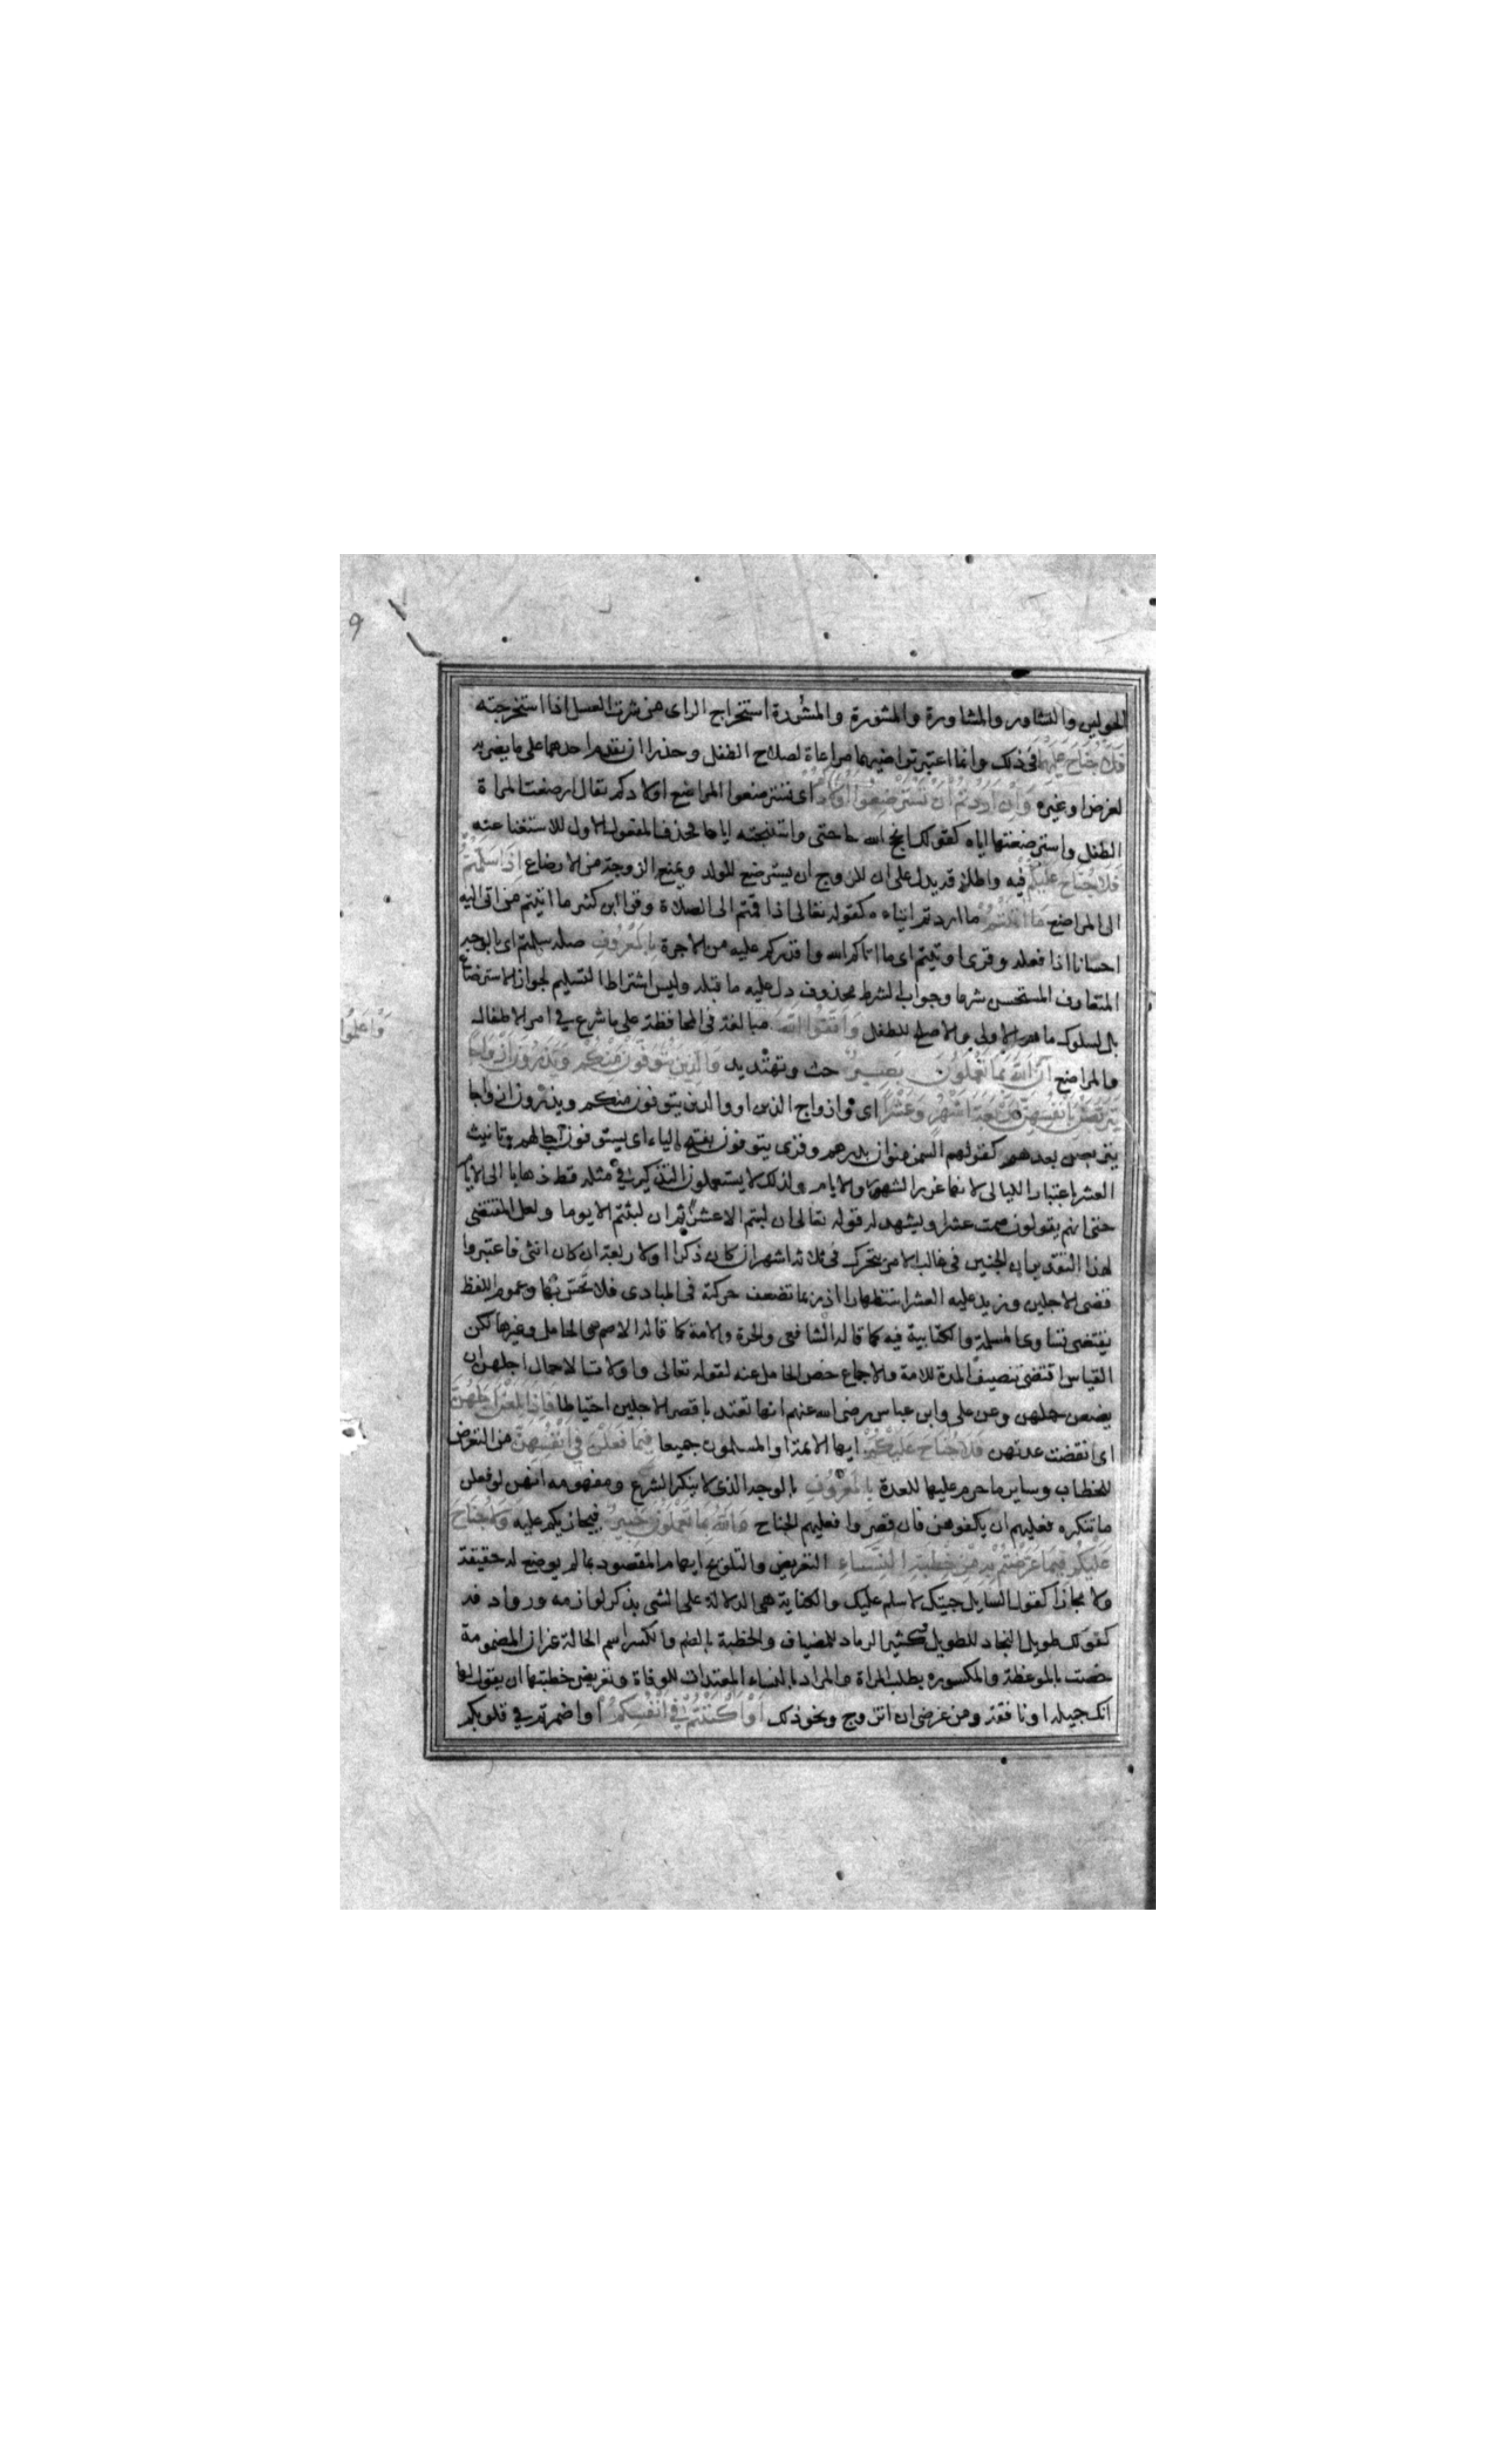 الحولين والتشاور والمشاورة والمشورة والمشورة استخراج الراى من شرت العسل اذا استخرجته
فَلَا جُنَاحَ عَلَيْهِمَا فى ذلك وانما اعتبر تراضيهما مراعاة لصلاح الطفل وحذرا ان يقدم احدهما على ما يضر به
لغرض او غيره وَاِنْ اَرَدْتُمْ اَنْ تَسْتَرْضِعُوا اَوْلَادَكُمْ اى تسترضعوا المراضع اولادكم يقال ارضعت المراة
الطفل واسترضعتها اياه كقولك انجح الله حاجتى واستنجحته اياها فحذف المفعول الاول للاستغنا عنه
فَلَا جُنَاحَ عَلَيْكُمْ فيه واطلاقه يدل على ان للزوج ان يسترضع للولد ويمنع الزوجة من الارضاع اِذَا سَلَّمْتُمْ
الى المراضع مَا اٰتَيْتُمْ ما اردتم ايتاءه كقوله تعالى اذا قمتم الى الصلاة وقرا ابن كثير ما اتيتم من اتى اليه
احسانا اذا فعله وقرى اوتيتم اى ما اتاكم الله واقدركم عليه من الاجرة بِالْمَعْرُوفِ صلة سلمتم اى بالوجه
المتعارف المستحسن شرعا وجواب الشرط محذوف دل عليه ما قبله وليس اشتراط التسليم لجواز الاسترضاع
بل لسلوك ما هو الاولى والاصلح للطفل وَاتَّقُوا اللّٰهَ مبالغة فى المحافظة على ما شرع فى امر الاطفال
وَاعْلَمُوا
والمراضع اَنَّ اللّٰهَ بِمَا تَعْمَلُونَ بَصِيرٌ حث وتهديد وَالَّذِينَ يُتَوَفَّوْنَ مِنْكُمْ وَيَذَرُونَ اَزْوَاجًا
يَتَرَبَّصْنَ بِاَنْفُسِهِنَّ اَرْبَعَةَ اَشْهُرٍ وَعَشْرًا اى وازواج الذين او والذين يتوفون منكم ويذرون ازواجا
يتربصن بعدهم كقولهم السمن منوان بدرهم وقرى يتوفون بفتح الياء اى يستوفون آجالهم وتانيث
العشر باعتبار الليالى لانها غرر الشهور والايام ولذلك لا يستعملون التذكير فى مثله قط ذهابا الى الايام
حتى انهم يقولون صمت عشرا ويشهد له قوله تعالى ان لبثتم الا عشرا ثم ان لبثتم الا يوما ولعل المقتضى
لهذا التقدير ان الجنين فى غالب الامر يتحرك فى ثلاثة اشهر ان كان ذكرا ولاربعة ان كان انثى فاعتبروا
قضى الاجلين وزيد عليه العشر استظهارا اذ ربما تضعف حركته فى المبادى فلا تحس بها وعموم اللفظ
يقتضى تساوى المسلمة والكتابية فيه كما قاله الشافعى والحرة والامة كما قاله الاصم والحامل وغيرها لكن
القياس اقتضى تنصيف المدة للامة والاجماع خص الحامل عنه لقوله تعالى واولات الاحمال اجلهن ان
يضعن حملهن وعن على وابن عباس رضى الله عنهم انها تعتد باقصر الاجلين احتياطا فَاِذَا بَلَغْنَ اَجَلَهُنَّ
اى انقضت عدتهن فَلَا جُنَاحَ عَلَيْكُمْ ايها الائمة او المسلمون جميعا فِيمَا فَعَلْنَ فِى اَنْفُسِهِنَّ من التعرض
للخطاب وساير ما حرم عليها للعدة بِالْمَعْرُوفِ بالوجه الذى لا ينكر الشرع ومفهومه انهن لو فعلن
ما تنكره فعليهم ان يكفوهن فان قصروا فعليهم الجناح وَاللّٰهُ بِمَا تَعْمَلُونَ خَبِيرٌ فيجازيكم عليه وَلَا جُنَاحَ
عَلَيْكُمْ فِيمَا عَرَّضْتُمْ بِهِ مِنْ خِطْبَةِ النِّسَاءِ التعريض والتلويح ايهام المقصود بما لم يوضع له حقيقة
ولا مجازا كقول السايل جيتك لاسلم عليك والكناية هى الدلالة على الشى بذكر لوازمه وروادفه
كقولك طويل النجاد للطويل وكثير الرماد للمضياف والخطبة بالضم والكسر اسم الحالة غير ان المضمومة
خصت بالموعظة والمكسوره بطلب المراة والمراد بالنساء المعتدات للوفاة وتعريض خطبتها ان يقول لها
انك جميلة او نافقة ومن غرضى ان اتزوج ونحو ذلك اَوْ اَكْنَنْتُمْ فِى اَنْفُسِكُمْ او اضمرتم فى قلوبكم